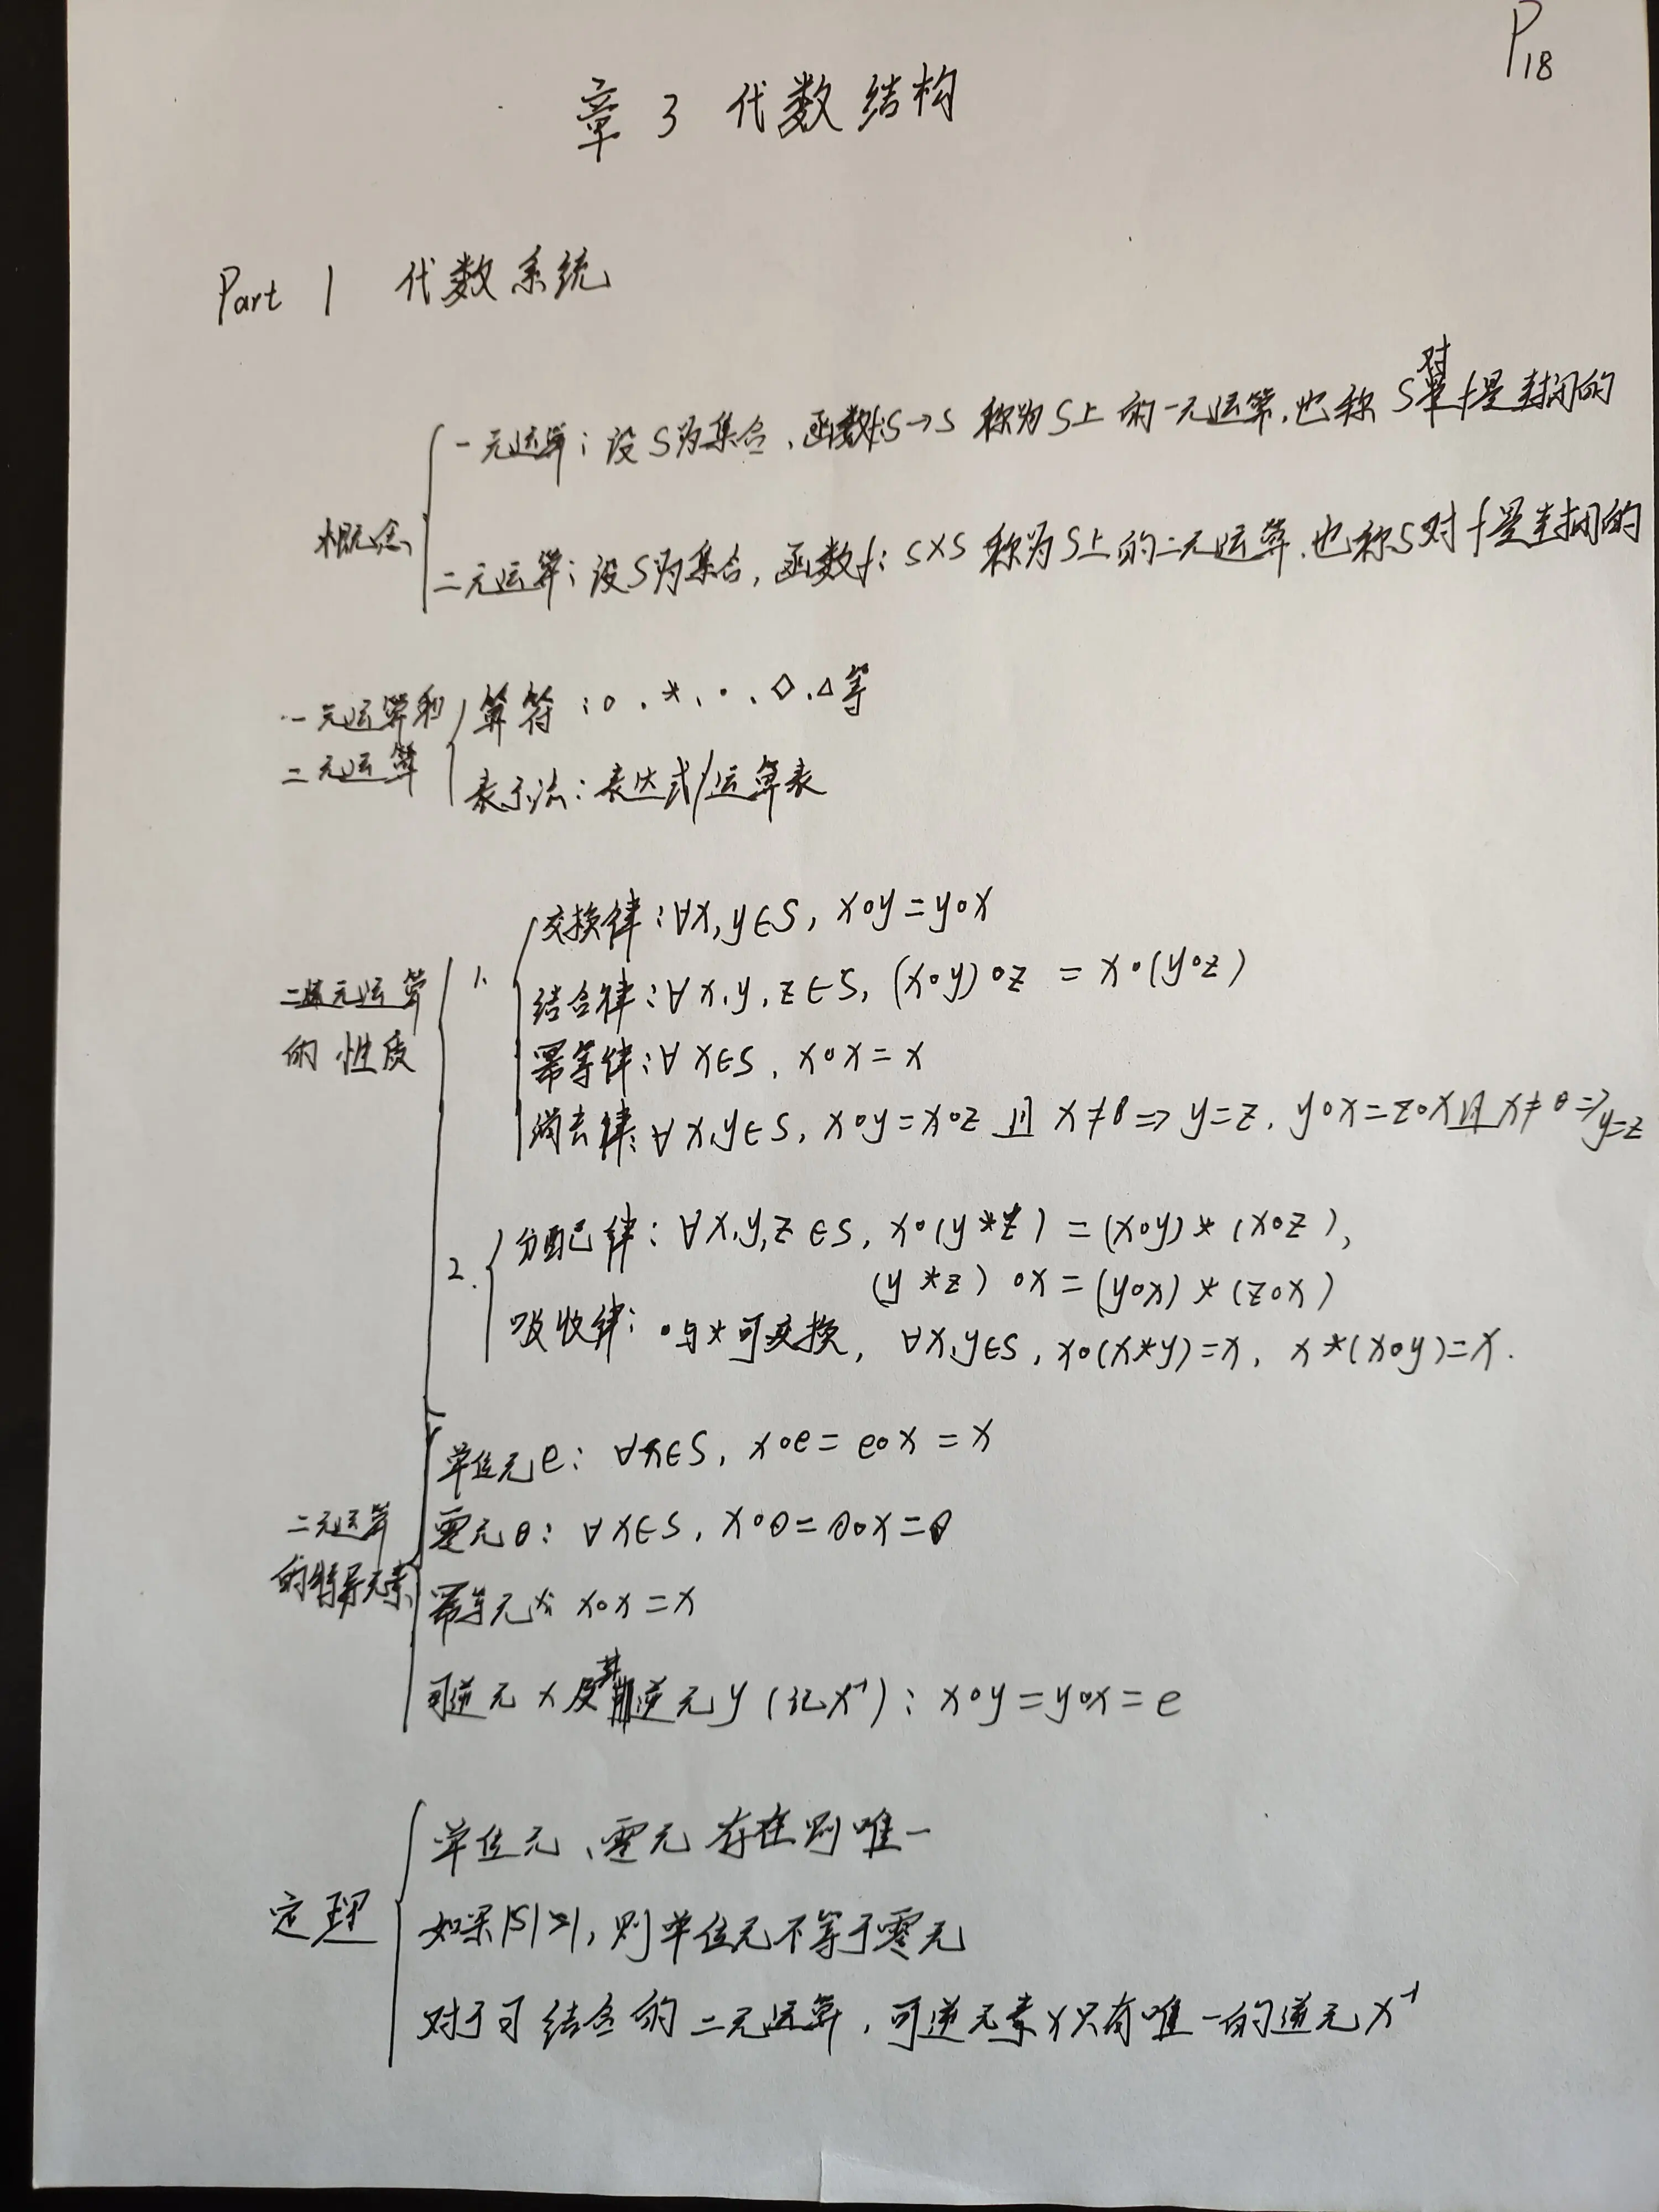 P18
章 3 代数结构
Part 1 代数系统
概念
一元运算：设S为集合，函数f:S→S 称为S上的一元运算，也称S对f是封闭的
二元运算：设S为集合，函数f：S×S 称为S上的二元运算，也称S对f是封闭的
一元运算和
二元运算
算符：∘、*、·、◇、△等
表示法：表达式/运算表
二元运算
的性质
1.
交换律：∀x,y∈S, x∘y=y∘x
结合律：∀x,y,z∈S, (x∘y)∘z = x∘(y∘z)
幂等律：∀x∈S, x∘x=x
消去律：∀x,y∈S, x∘y=x∘z 且 x≠θ⇒y=z, y∘x=z∘x且x≠θ⇒y=z
2.
分配律：∀x,y,z∈S, x∘(y*z)=(x∘y)*(x∘z),
(y*z)∘x=(y∘x)*(z∘x)
吸收律：∘与*可交换, ∀x,y∈S, x∘(x*y)=x, x*(x∘y)=x.
二元运算
的特异元素
单位元e：∀x∈S, x∘e=e∘x=x
零元θ：∀x∈S, x∘θ=θ∘x=θ
幂等元x：x∘x=x
可逆元x及其逆元y(记x⁻¹)：x∘y=y∘x=e
定理
单位元、零元存在则唯一
如果|S|>1, 则单位元不等于零元
对于可结合的二元运算，可逆元素x只有唯一的逆元x⁻¹